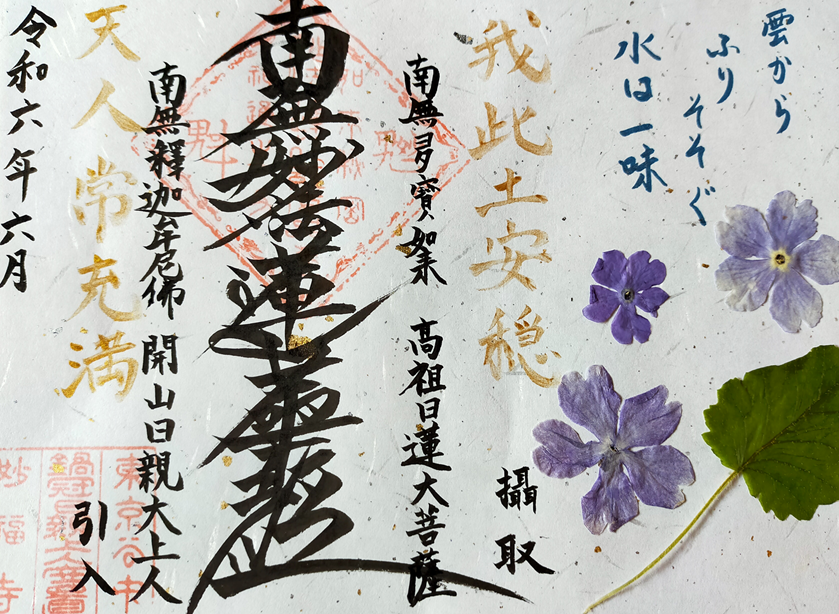 雲から
ふり
そそぐ
水は一味
我此土安穏
攝取
南無多寳如来 高祖日蓮大菩薩
南無妙法蓮華経
南無釋迦牟尼佛 開山日親大上人
引入
天人常充満
令和六年六月
東京谷中
妙福寺